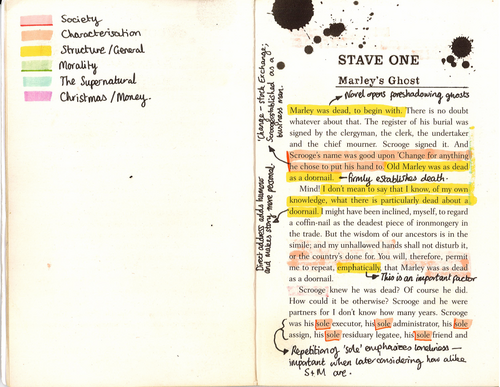 Society
Characterisation
Structure/General
Morality
The Supernatural
Christmas/Money.
'Change - stock Exchange;
Scrooge established as a
business man.
Direct address adds humour
and makes story more personal.
STAVE ONE
Marley's Ghost
Novel opens foreshadowing ghosts
Marley was dead, to begin with. There is no doubt
whatever about that. The register of his burial was
signed by the clergyman, the clerk, the undertaker
and the chief mourner. Scrooge signed it. And
Scrooge's name was good upon 'Change for anything
he chose to put his hand to. Old Marley was as dead
as a doornail.
firmly establishes death.
Mind! I don't mean to say that I know, of my own
knowledge, what there is particularly dead about a
doornail. I might have been inclined, myself, to regard
a coffin-nail as the deadest piece of ironmongery in
the trade. But the wisdom of our ancestors is in the
simile; and my unhallowed hands shall not disturb it,
or the country's done for. You will, therefore, permit
me to repeat, emphatically, that Marley was as dead
as a doornail.
This is an important factor
Scrooge knew he was dead? Of course he did.
How could it be otherwise? Scrooge and he were
partners for I don't know how many years. Scrooge
was his sole executor, his sole administrator, his sole
assign, his sole residuary legatee, his sole friend and
Repetition of 'sole' emphasizes loneliness —
important when later considering how alike
S+M are.